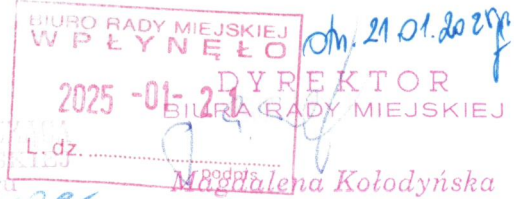 BIURO RADY MIEJSKIEJ
WPŁYNĘŁO
2025 -01- 21
L. dz. ........................
podpis
21.01.2025r
DYREKTOR
BIURA RADY MIEJSKIEJ
Magdalena Kołodyńska